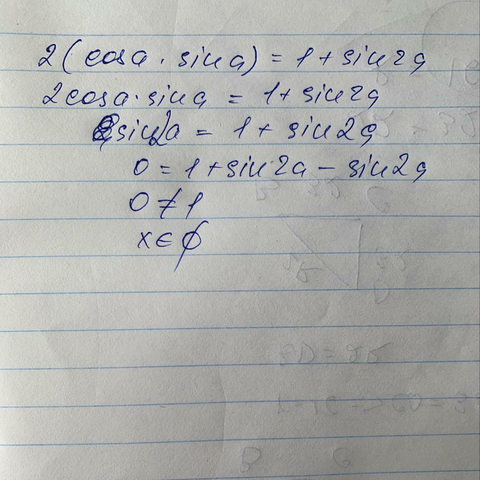 2(cosa · sina) = 1 + sin2a
2cosa · sina = 1 + sin2a
sin2a = 1 + sin2a
0 = 1 + sin2a - sin2a
0 ≠ 1
x ∈ ∅